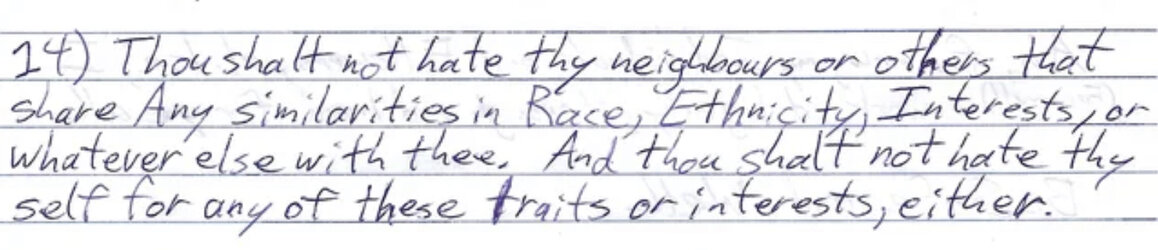 14) Thou shalt not hate thy neighbours or others that
share Any similarities in Race, Ethnicity, Interests, or
whatever else with thee. And thou shalt not hate thy
self for any of these traits or interests, either.